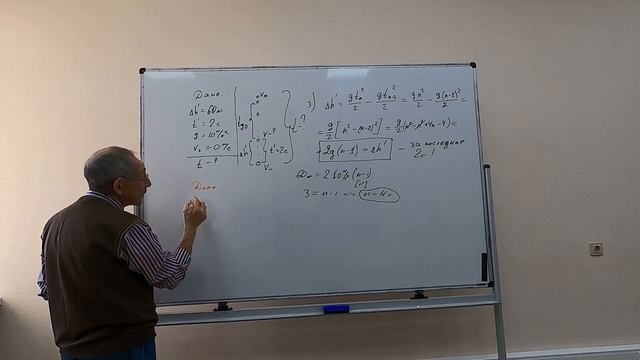 Дано:
Δh' = 60м
t' = 2с
g = 10м/с²
V₀ = 0м/с
t - ?
V₀
t'=2с
V-?
Δh'
3) Δh' = gtₙ²/2 - gtₙ₋₂²/2 = gn²/2 - g(n-2)²/2 =
= g/2 [n² - (n-2)²] = g/2 (n² - n² + 4n - 4) =
2g(n-1) = Δh' - за последние 2с!
60м = 2·10м/с² (n-1)
3 = n-1 => n = 4с
Дано